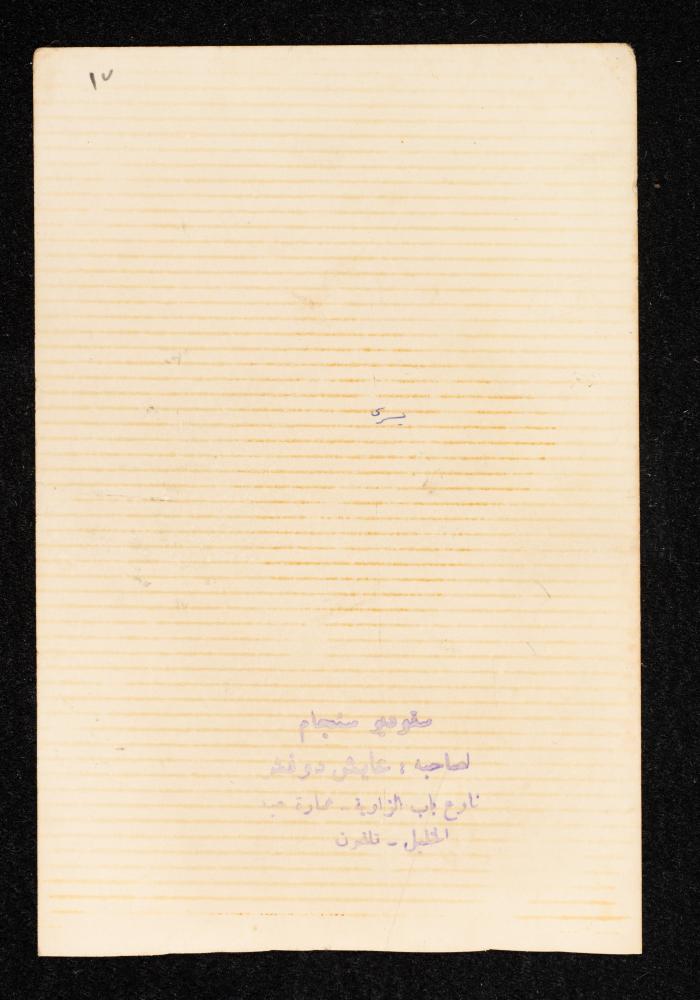 ١٧
يسرى
ستوديو سنجام
لصاحبه : عايش دوفش
شارع باب الزاوية - عمارة
الخليل - تلفون